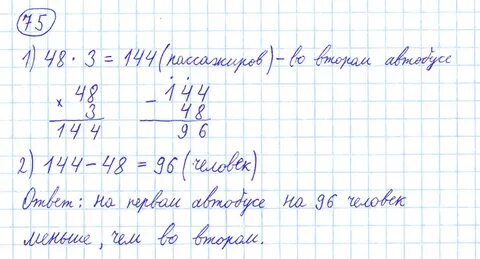 75
1) 48 · 3 = 144 (пассажиров) – во втором автобусе
× 48
3
144
− 144
48
96
2) 144 – 48 = 96 (человек)
Ответ: на первом автобусе на 96 человек
меньше, чем во втором.